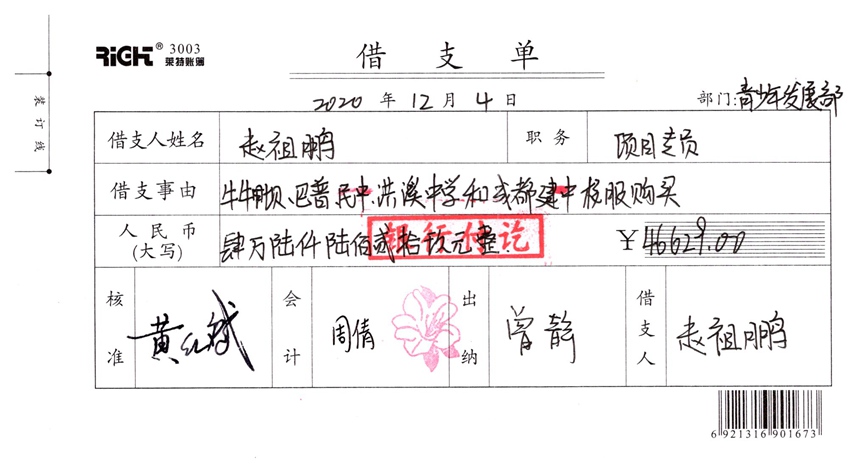 RiGHt® 3003
莱特账簿
借支单
2020年12月4日
部门:青少年发展部
装订线
借支人姓名 赵祖鹏 职务 项目专员
借支事由 牛牛坝、巴普民中、洪溪中学和成都建中校服购买
人民币(大写) 肆万陆仟陆佰贰拾玖元整 ¥46629.00
银行付讫
核准 黄红斌 会计 周倩 出纳 曾静 借支人 赵祖鹏
6 921316 901673